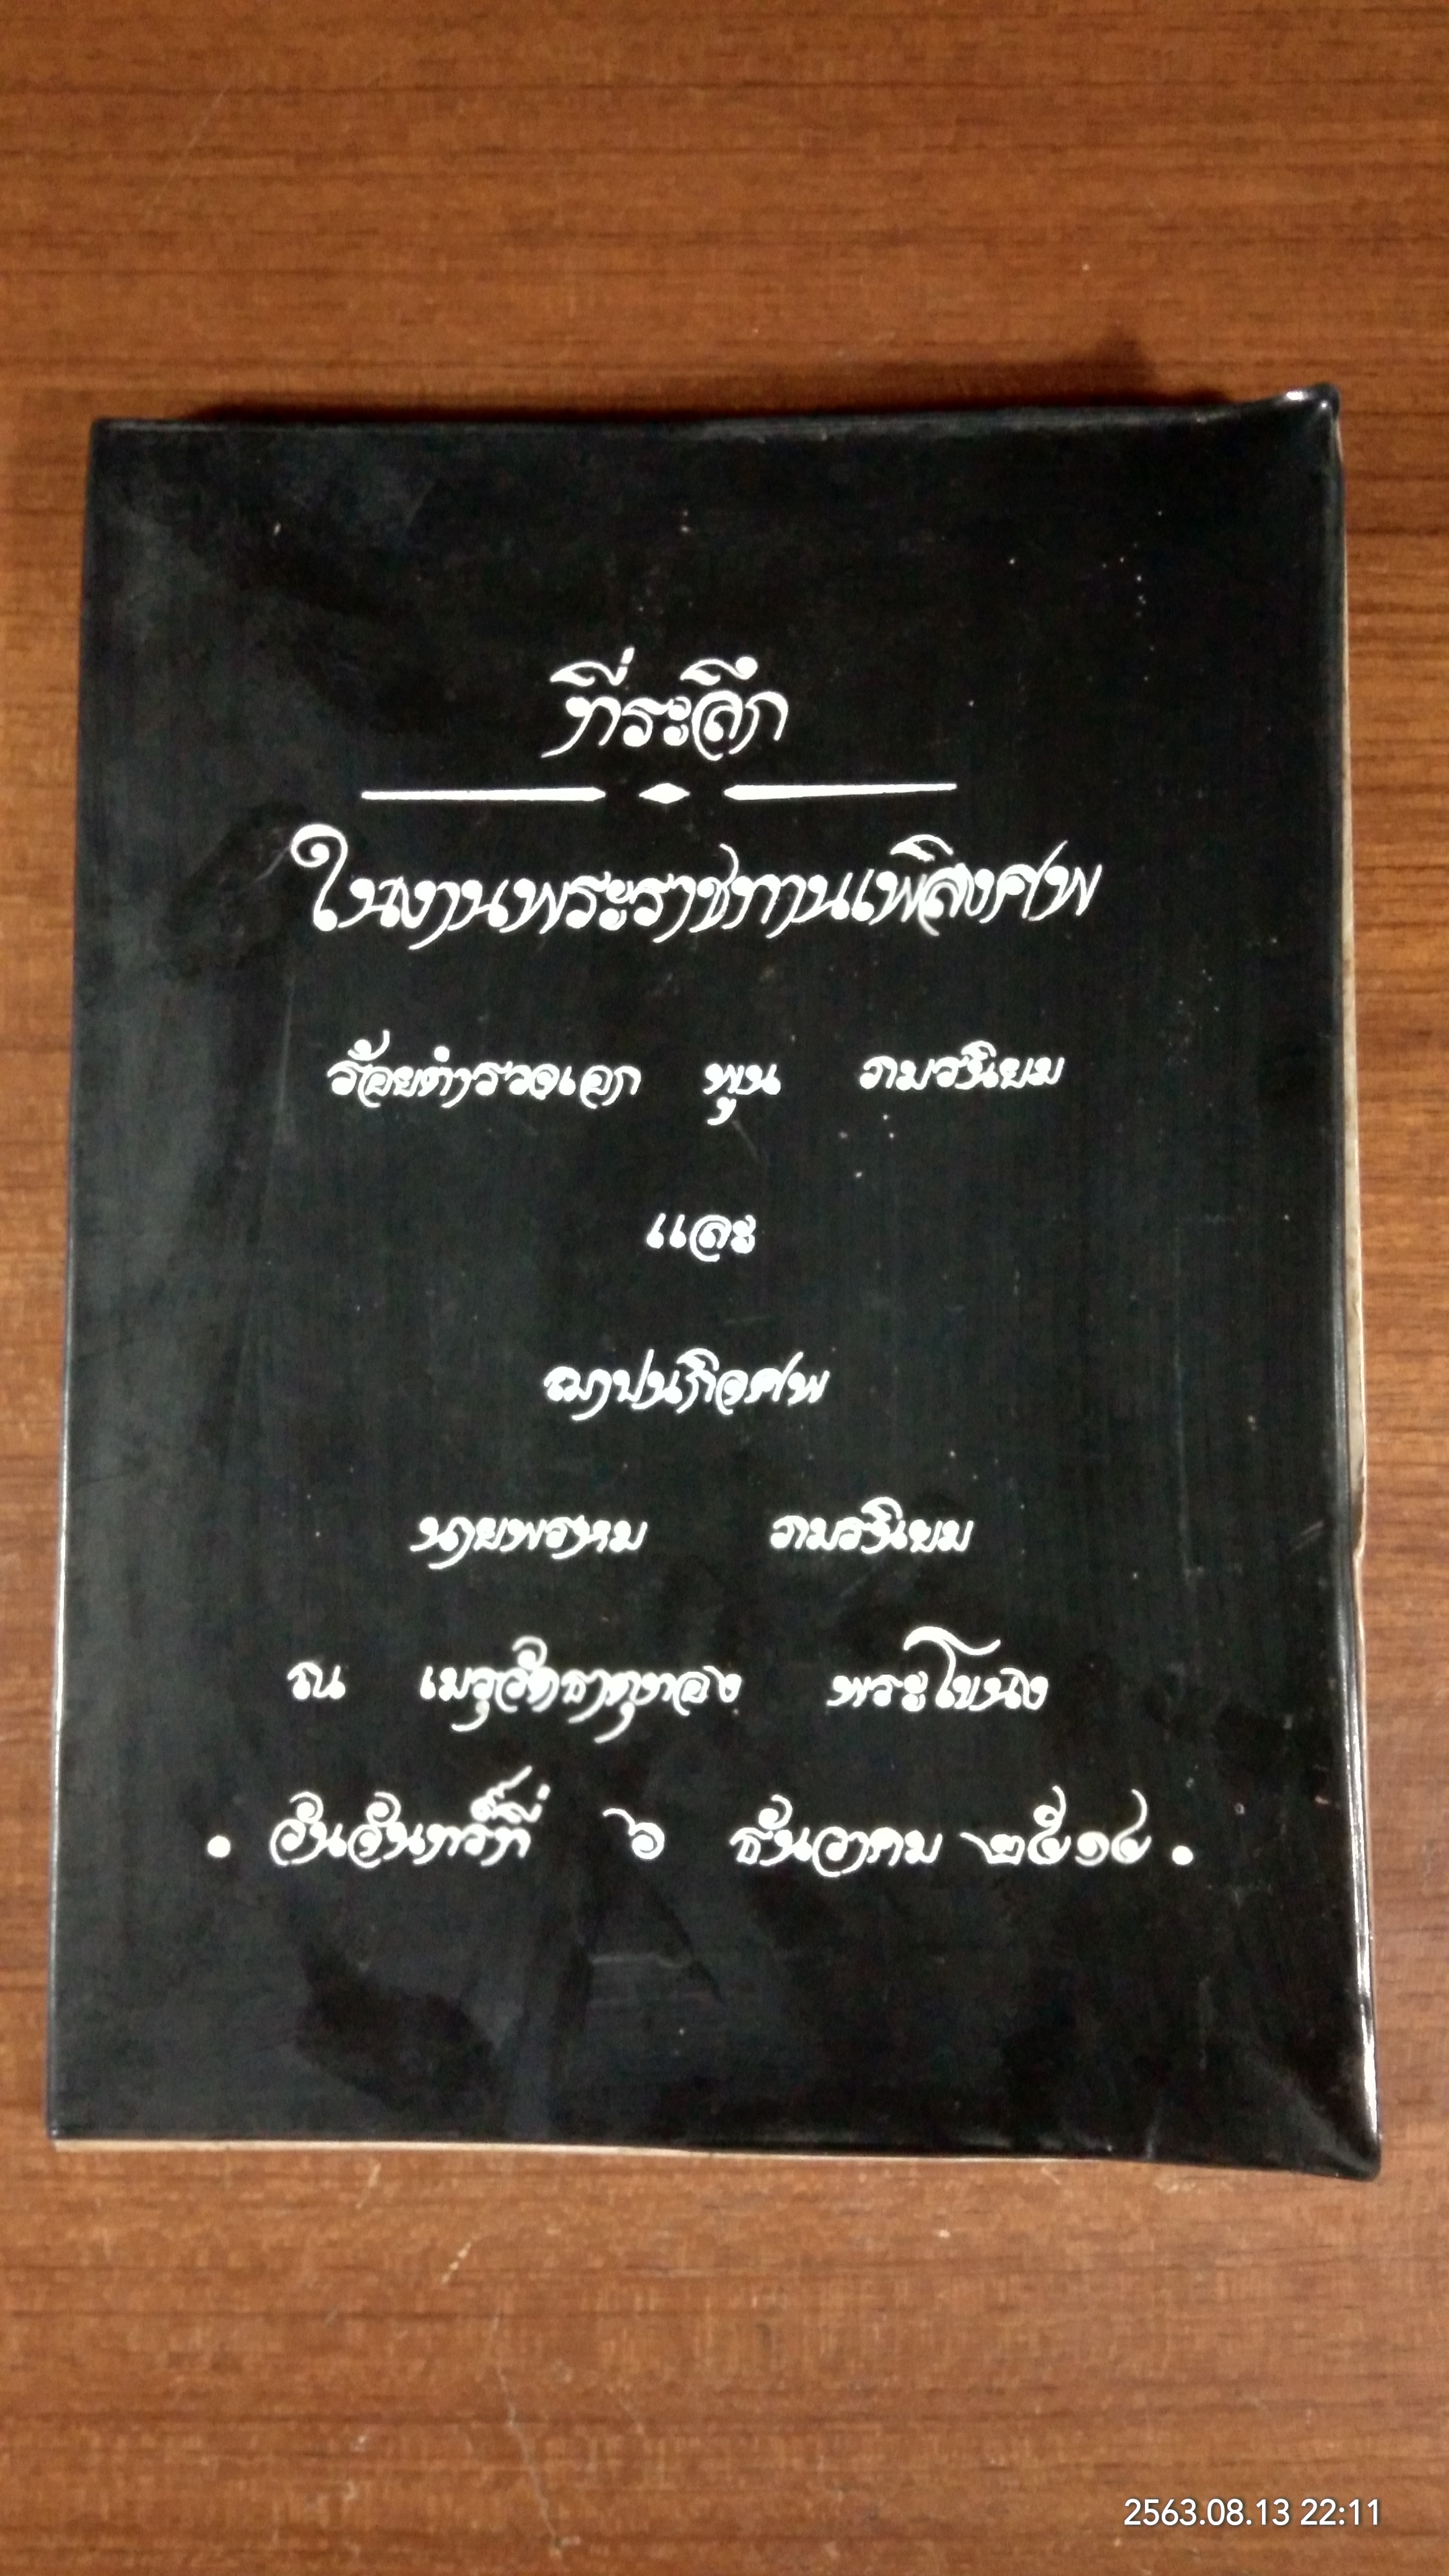 ที่ระลึก
ในงานพระราชทานเพลิงศพ
ร้อยตำรวจเอก พูน ภมรนิยม
และ
ฌาปนกิจศพ
นายพรหม ภมรนิยม
ณ เมรุวัดธาตุทอง พระโขนง
• วันจันทร์ที่ ๖ ธันวาคม ๒๕๑๔ •
2563.08.13 22:11